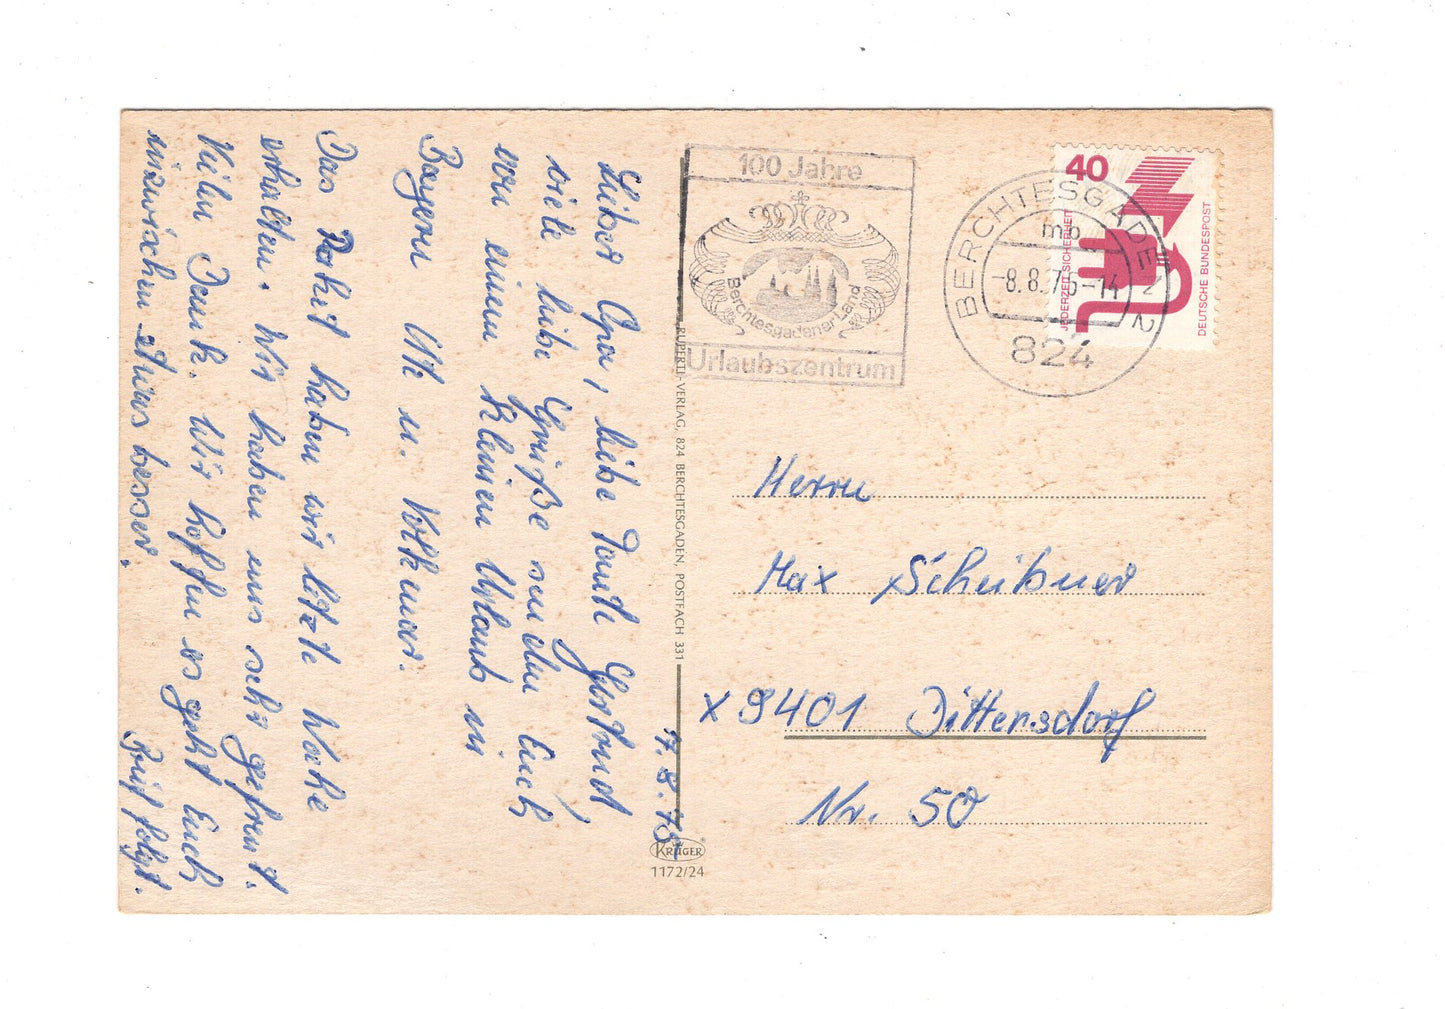 17.8.75
Lieber Opa, liebe Tante Gertrud
viele liebe Grüße senden Euch
von einem kleinen Urlaub in
Bayern Ute u. Volkmar.
Das Paket haben wir letzte Woche
erhalten. Wir haben uns sehr gefreut.
Vielen Dank. Wir hoffen es geht Euch
inzwischen etwas besser.
Brief folgt.
RUPERTI-VERLAG, 824 BERCHTESGADEN, POSTFACH 331
KRÜGER
1172/24
100 Jahre
Berchtesgadener Land
Urlaubszentrum
BERCHTESGADEN 2
mb
-8.8.75-14
824
40
JEDERZEIT SICHERHEIT
DEUTSCHE BUNDESPOST
Herrn
Max Scheibner
X 9401 Dittersdorf
Nr. 50